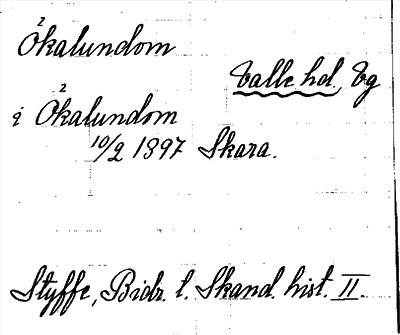 Ökalundom
Valle hd, Vg
i Ökalundom
10/2 1397 Skara.
Styffe, Bidr. t. Skand. hist. II.